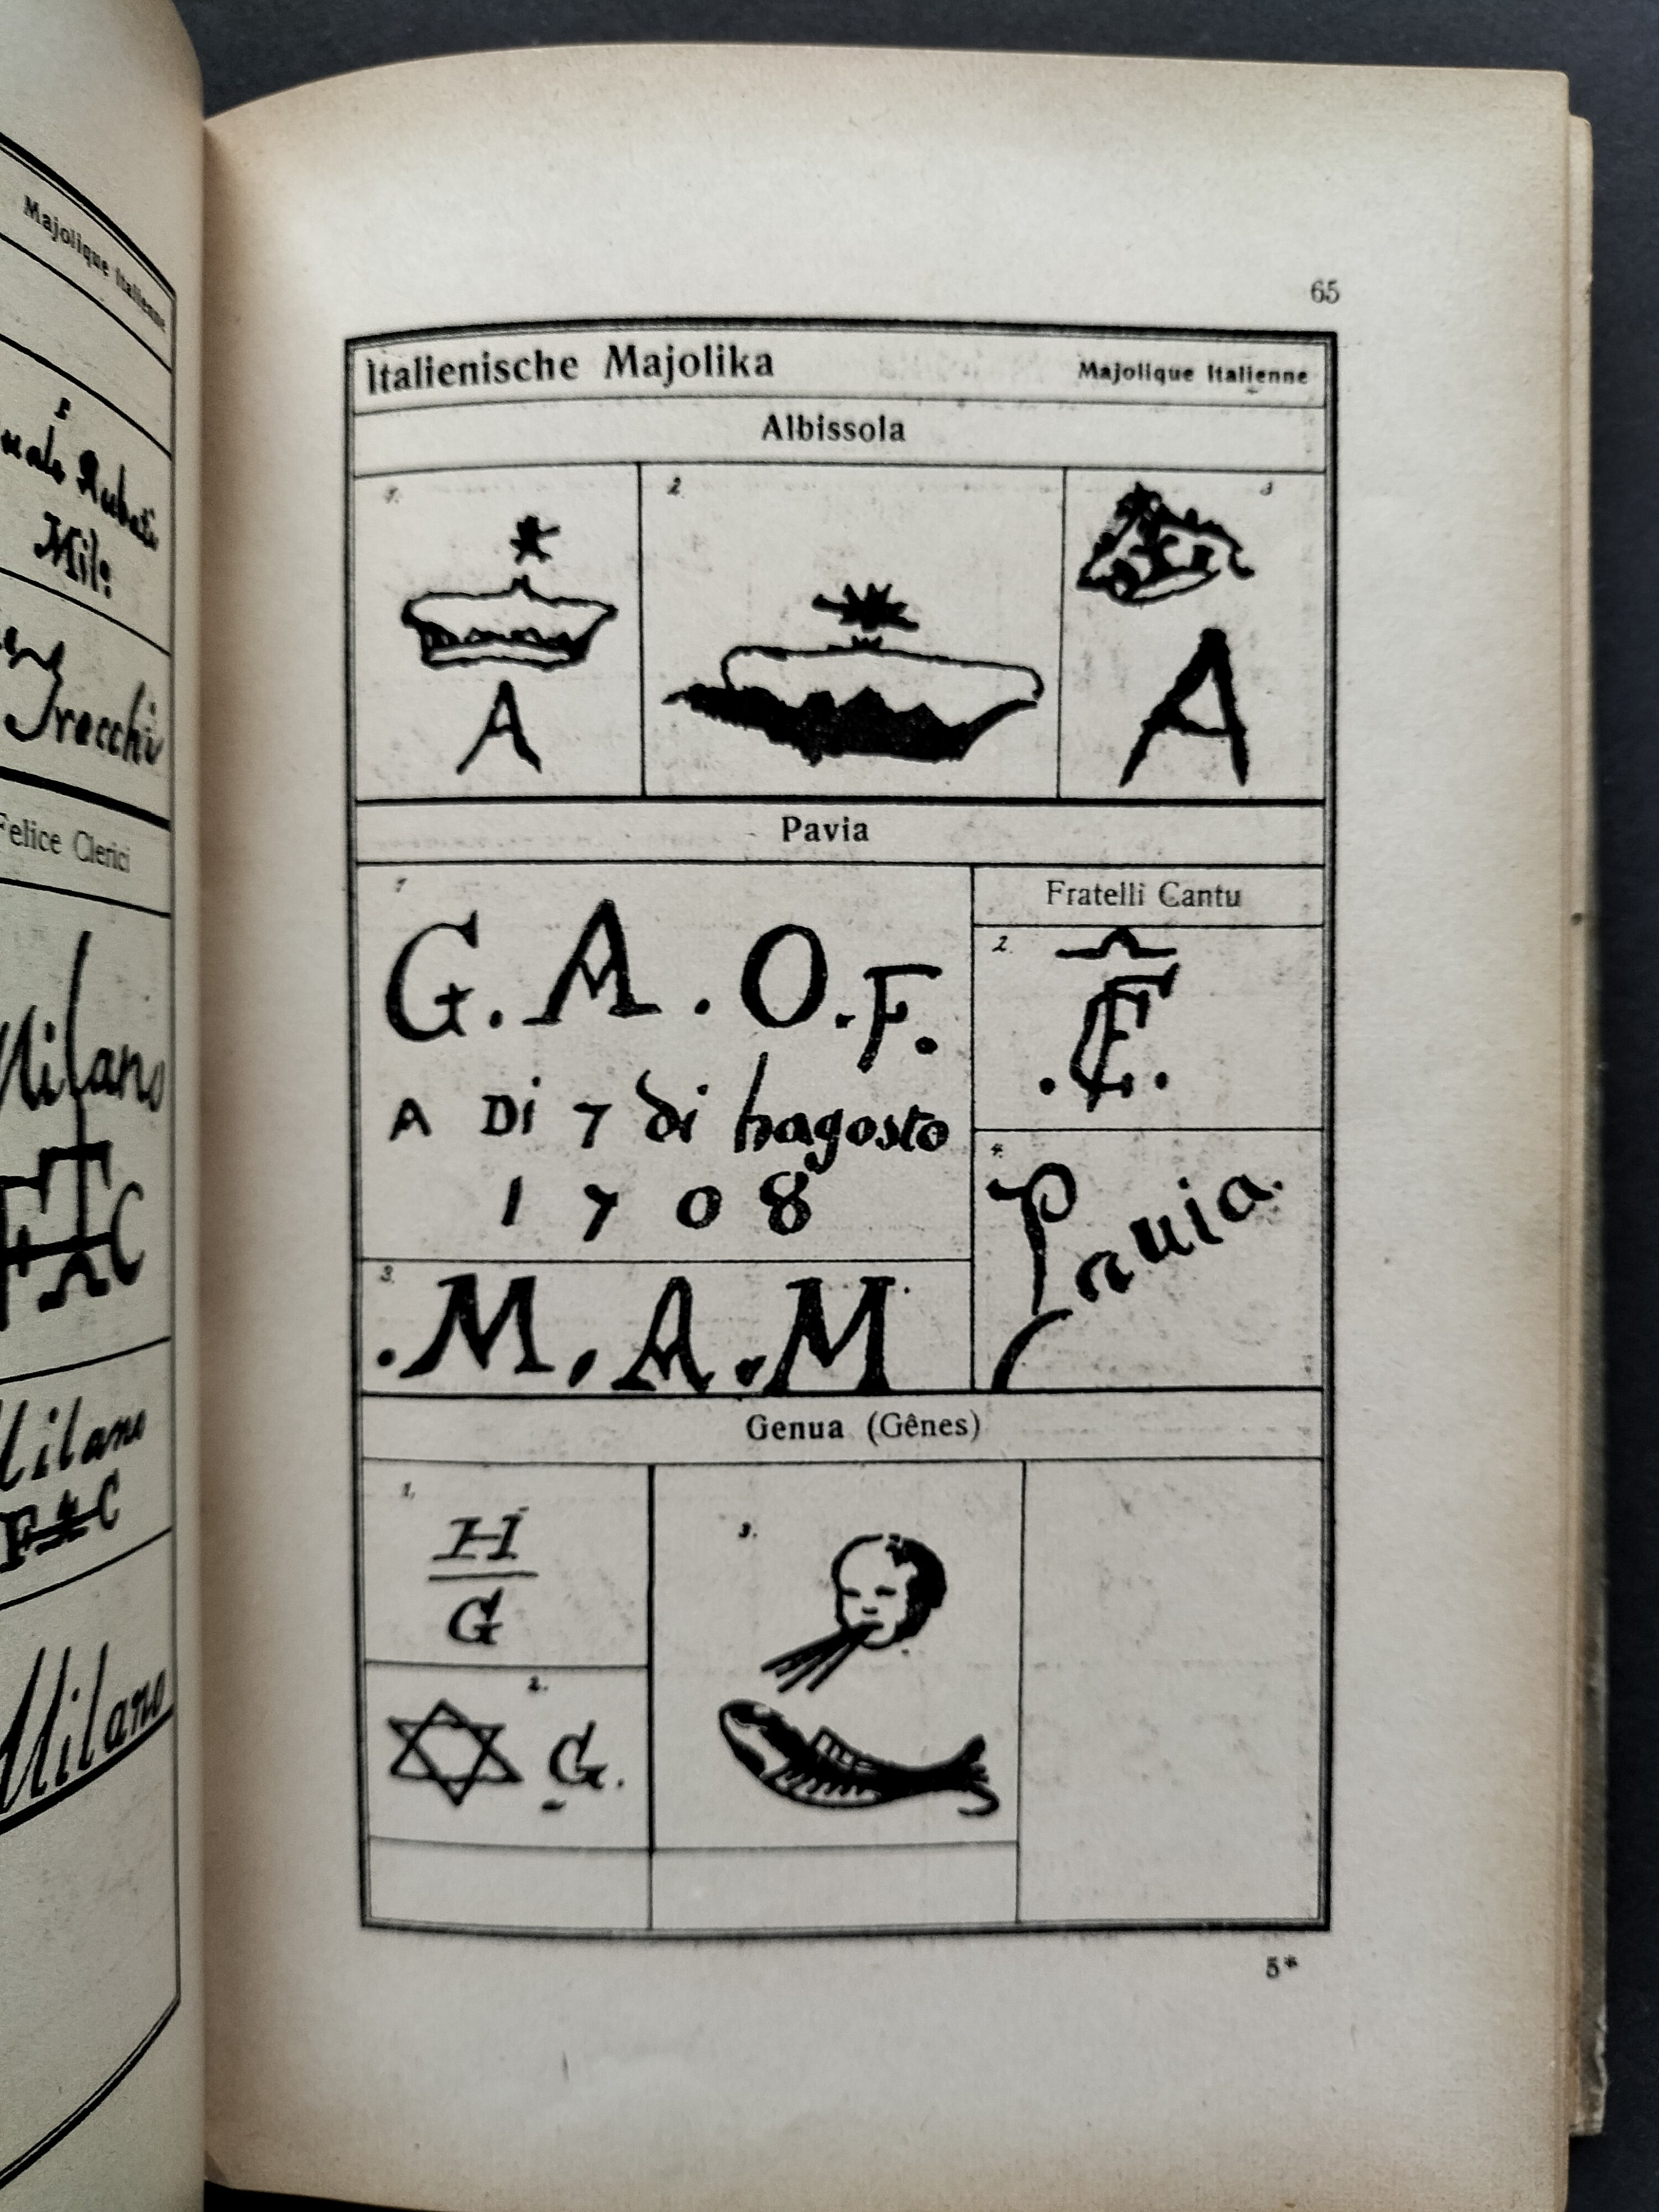 Majolique Italienne
Mil:
Grecchi
Felice Clerici
Milano
F C
Milano
F C
Milano
65
Italienische Majolika
Majolique Italienne
Albissola
1.
2
3
A
A
Pavia
1
G. A. O. F.
A Di 7 di hagosto
1708
Fratelli Cantu
2.
3.
.M. A. M
4.
Pauia.
Genua (Gênes)
1.
H
G
2.
G.
3.
5*